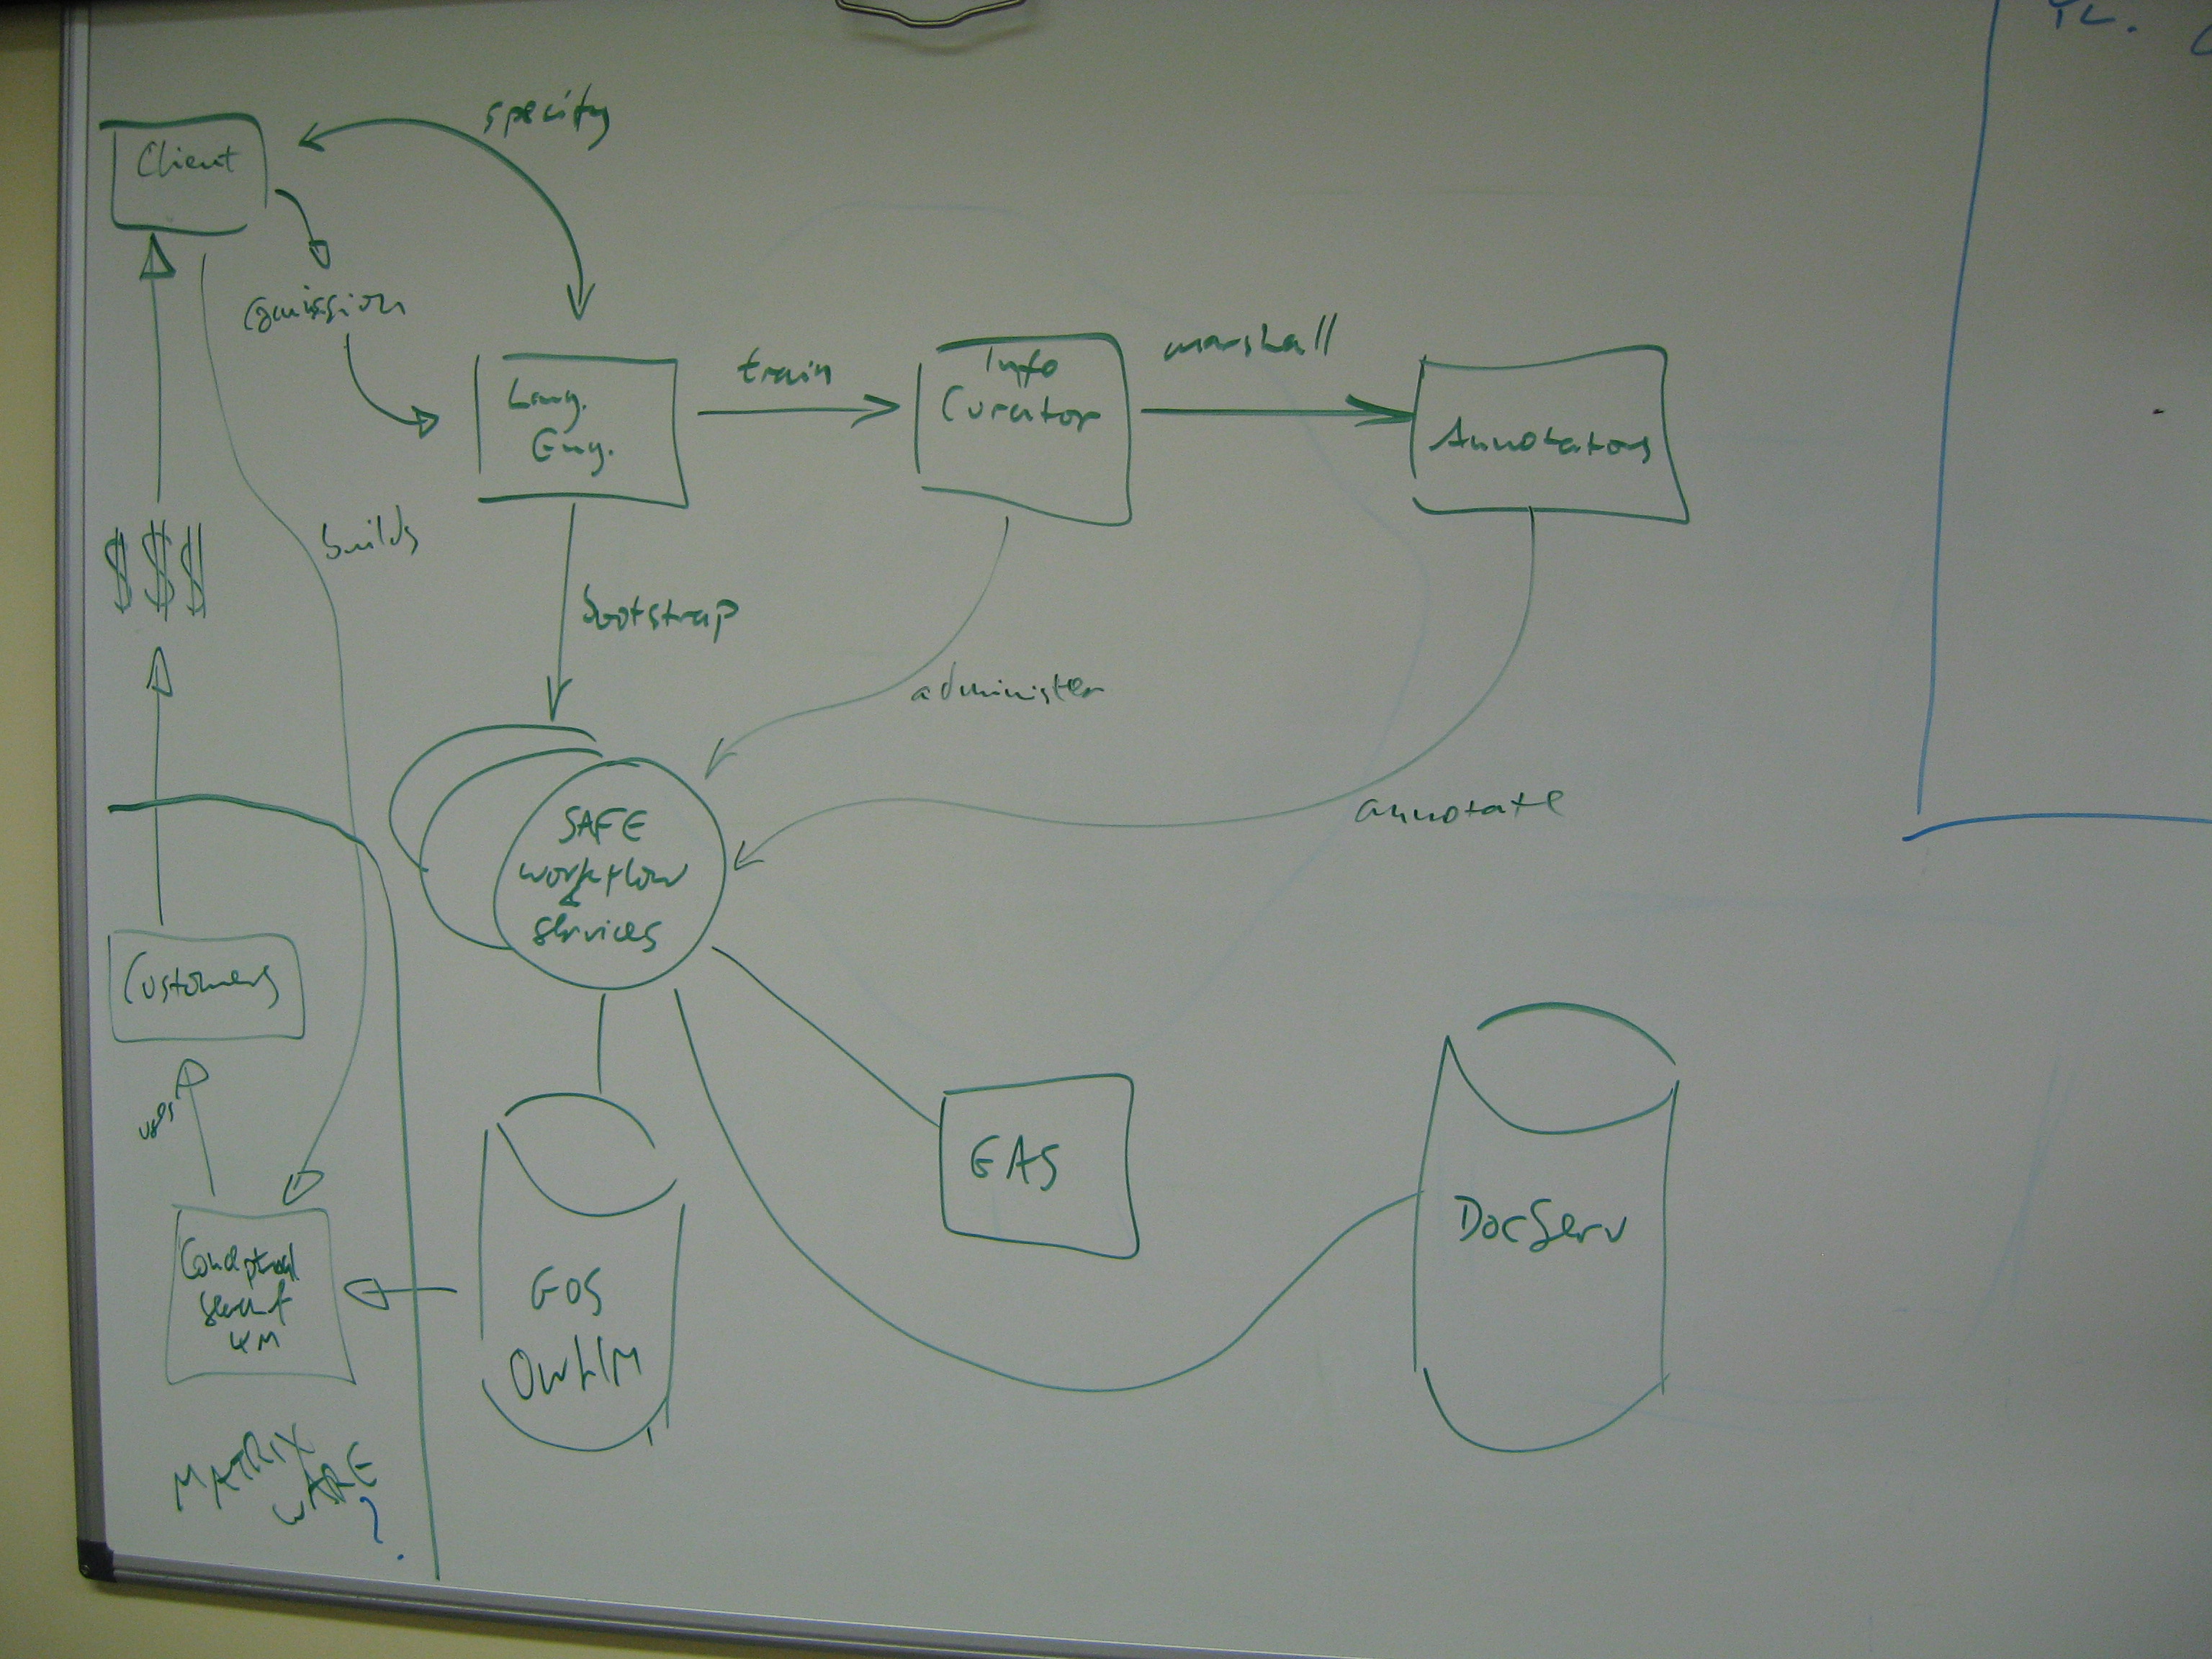 specify
Client
comission
Lang.
Eng.
train
Info
Curator
marshall
Annotators
$$$
builds
bootstrap
administer
annotate
SAFE
workflow
&
services
Customers
uses
GAS
DocServ
Conceptual
search
KM
GOS
OWLIM
MATRIX
WARE
?